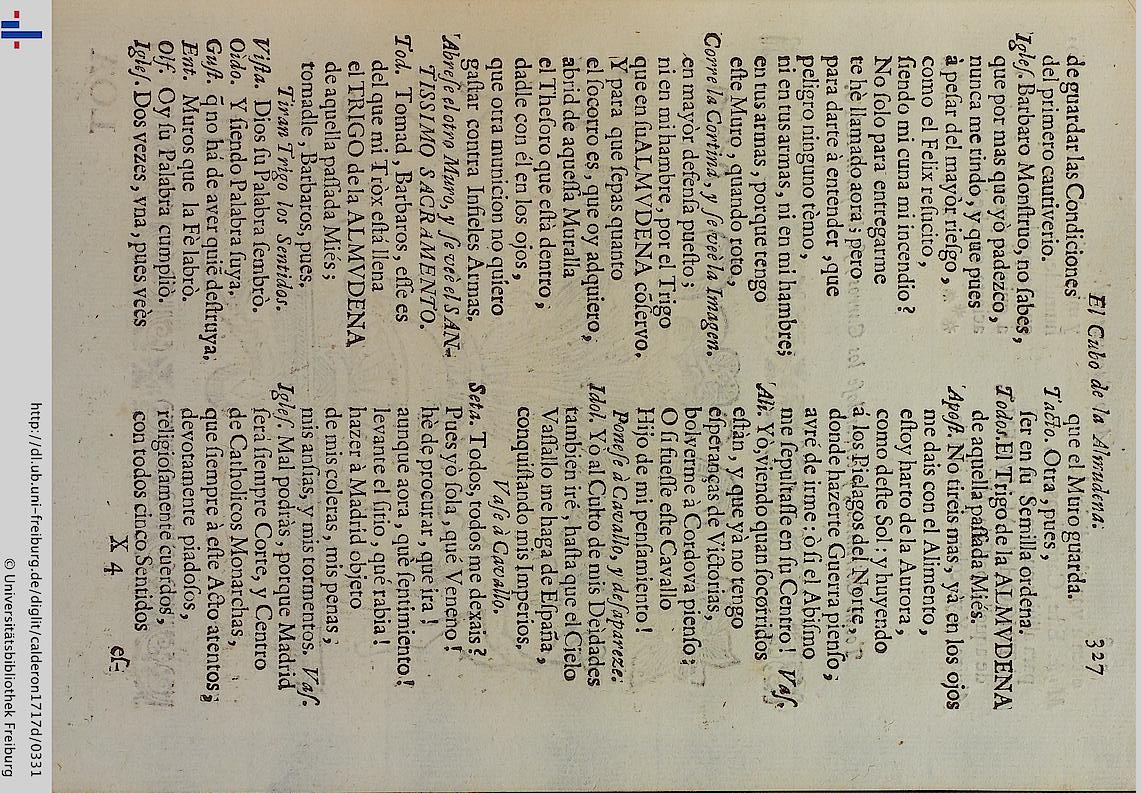 El Cubo de la Almudena. 327
de guardar las Condiciones
del primero cautiverio.
Igles. Barbaro Monstruo, no sabes,
que por mas que yò padezco,
nunca me rindo, y que pues
à pesar del mayor riesgo,
como el Felix resucito,
siendo mi cuna mi incendio?
No solo para entregarme
te hè llamado aora; pero
para darte à entender, que
peligro ninguno tèmo,
ni en tus armas, ni en mi hambre;
en tus armas, porque tengo
este Muro, quando roto,
Corre la Cortina, y se veè la Imagen.
en mayòr defensa puesto;
ni en mi hambre, por el Trigo
que en su ALMVDENA cõservo.
Y para que sepas quanto
el socorro es, que oy adquiero,
abrid de aquessa Muralla
el Thesoro que està dentro,
dadle con èl en los ojos,
que otra municion no quiero
gastar contra Infieles Armas.
Abrese el otro Muro, y se veè el SAN-
TISSIMO SACRAMENTO.
Tod. Tomad, Barbaros, esse es
del que mi Tròx està llena
el TRIGO de la ALMVDENA
de aquella passada Miés;
tomadle, Barbaros, pues.
Tiran Trigo los Sentidos.
Vista. Dios su Palabra sembrò.
Oìdo. Y siendo Palabra suya.
Gust. q̃ no hà de aver quiẽ destruya.
Ent. Muros que la Fè labrò.
Olf. Oy su Palabra cumpliò.
Igles. Dos vezes, vna, pues veès
que el Muro guarda.
Tacto. Otra, pues,
ser en su Semilla ordena.
Todos. El Trigo de la ALMVDENA
de aquella passada Miés.
Apost. No tireis mas, yà en los ojos
me dais con el Alimento,
estoy harto de la Aurora,
como deste Sol: y huyendo
à los Pielagos del Norte,
donde hazerte Guerra pienso,
avrè de irme: ò si el Abismo
me sepultasse en su Centro! Vas.
Ali. Yò, viendo quan socorridos
estàn, y que yà no tengo
esperanças de Victorias,
bolverme à Cordova pienso;
O si fuesse este Cavallo
Hijo de mi pensamiento!
Ponese à Cavallo, y desapareze.
Idol. Yò al Culto de mis Deidades
tambien irè, hasta que el Cielo
Vassallo me haga de España,
conquistando mis Imperios.
Vase à Cavallo.
Seta. Todos, todos me dexais?
Pues yò sola, què Veneno!
hè de procurar, què ira!
aunque aora, què sentimiento!
levante el sitio, què rabia!
hazer à Madrid objeto
de mis coleras, mis penas,
mis ansias, y mis tormentos. Vas.
Igles. Mal podràs, porque Madrid
serà siempre Corte, y Centro
de Catholicos Monarchas,
que siempre à este Acto atentos,
devotamente piadosos,
religiosamente cuerdos,
con todos cinco Sentidos
X 4 es-
http://dl.ub.uni-freiburg.de/diglit/calderon1717d/0331
© Universitätsbibliothek Freiburg